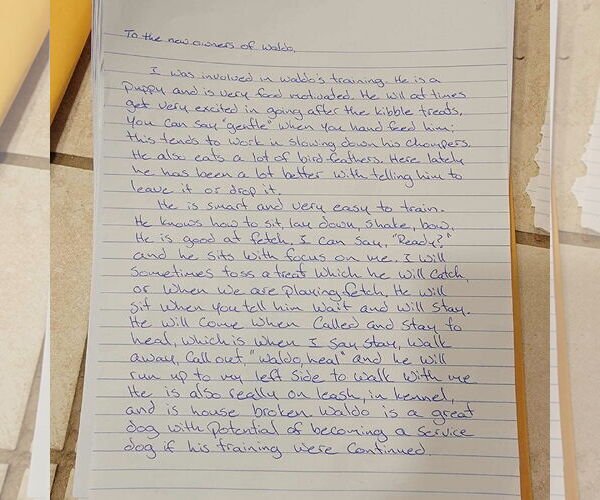 To the new owners of Waldo,
I was involved in Waldo's training. He is a
puppy and is very food motivated. He will at times
get very excited in going after the kibble treats.
You can say "gentle" when you hand feed him;
this tends to work in slowing down his chompers.
He also eats a lot of bird feathers. Here lately
he has been a lot better with telling him to
leave it or drop it.
He is smart and very easy to train.
He knows how to sit, lay down, shake, bow.
He is good at fetch. I can say, "Ready?"
and he sits with focus on me. I will
sometimes toss a treat which he will catch,
or when we are playing fetch. He will
sit when you tell him wait and will stay.
He will come when called and stay to
heal, which is when I say stay, walk
away, call out, "Waldo, heal" and he will
run up to my left side to walk with me
He is also really on leash, in kennel,
and is house broken Waldo is a great
dog with potential of becoming a service
dog if his training were continued